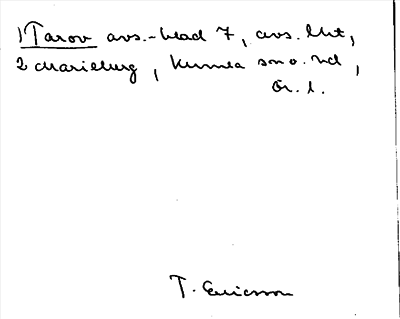 1) Tarov avs.-blad 7, avs. lht,
2 Marieberg, Kumla sn o. hd,
Ör. l.
T. Ericsson